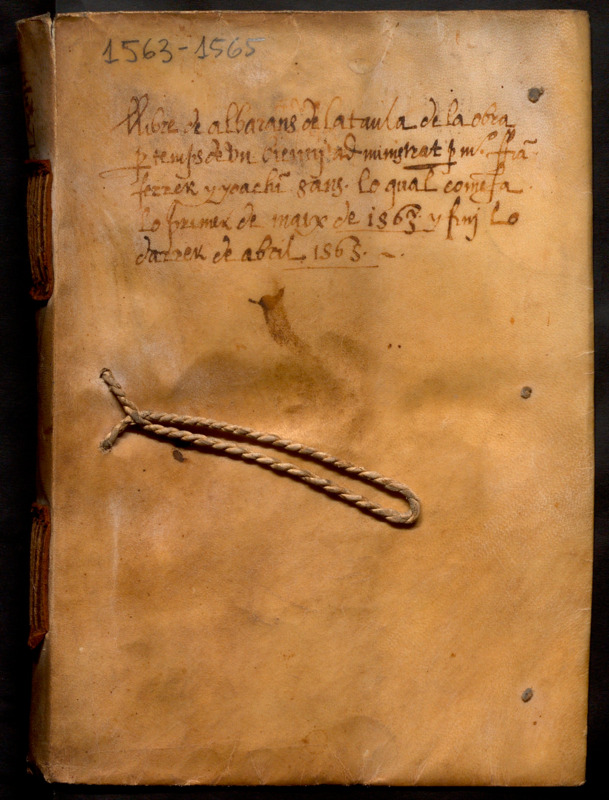 1563-1565
Llibre de albarans de la taula de la obra
p temps de vn bienni administrat p mº. ffrã
ferrer y yoachĩ sans. lo qual comẽsa
lo primer de maix de 1563 y finj lo
darrer de abril 1565.